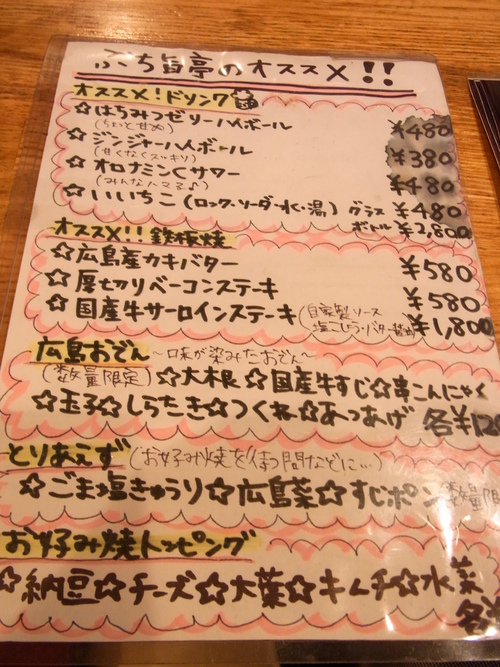 ぶち旨亭のオススメ!!
オススメ!ドリンク
☆はちみつゼリーハイボール ¥480
(ちょっと甘め)
☆ジンジャーハイボール ¥380
(甘くなくスッキリ)
☆オロナミンCサワー ¥480
(みんなハマる♪)
☆いいちこ(ロック・ソーダ・水・湯) グラス ¥480
ボトル ¥2,800
オススメ!!鉄板焼
☆広島産カキバター ¥580
☆厚切りベーコンステーキ ¥580
☆国産牛サーロインステーキ(自家製ソース ¥1,800
塩こしょう・バター醤油)
広島おでん~味が染みたおでん~
(数量限定)☆大根☆国産牛すじ☆串こんにゃく
☆玉子☆しらたき☆つくね☆あつあげ 各¥120
とりあえず(お好み焼を待つ間などに…)
☆ごま塩きゅうり☆広島菜☆すじポン 数量限
お好み焼トッピング
☆納豆☆チーズ☆大葉☆キムチ☆水菜
各